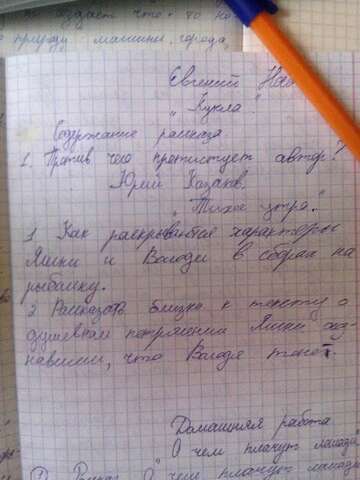 создаёт что-то но
природу машины города
Евгений Носов
„Кукла".
Содержание рассказа.
1. Против чего протистует автор?
Юрий Казаков.
„Тихое утро."
1 Как раскрываются характеры
Яшки и Володи в сборах на
рыбалку.
2 Рассказать близко к тексту о
душевном потрясении Яшки соз
навшем, что Володя тонет.
Домашняя работа
О чем плачут лошади
О чем плачут лошади